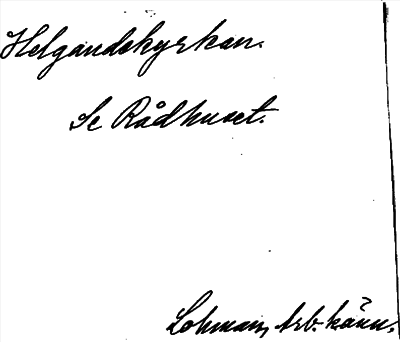 Helgandskyrkan.
Se Rådhuset.
Lohman, Arb. känn.